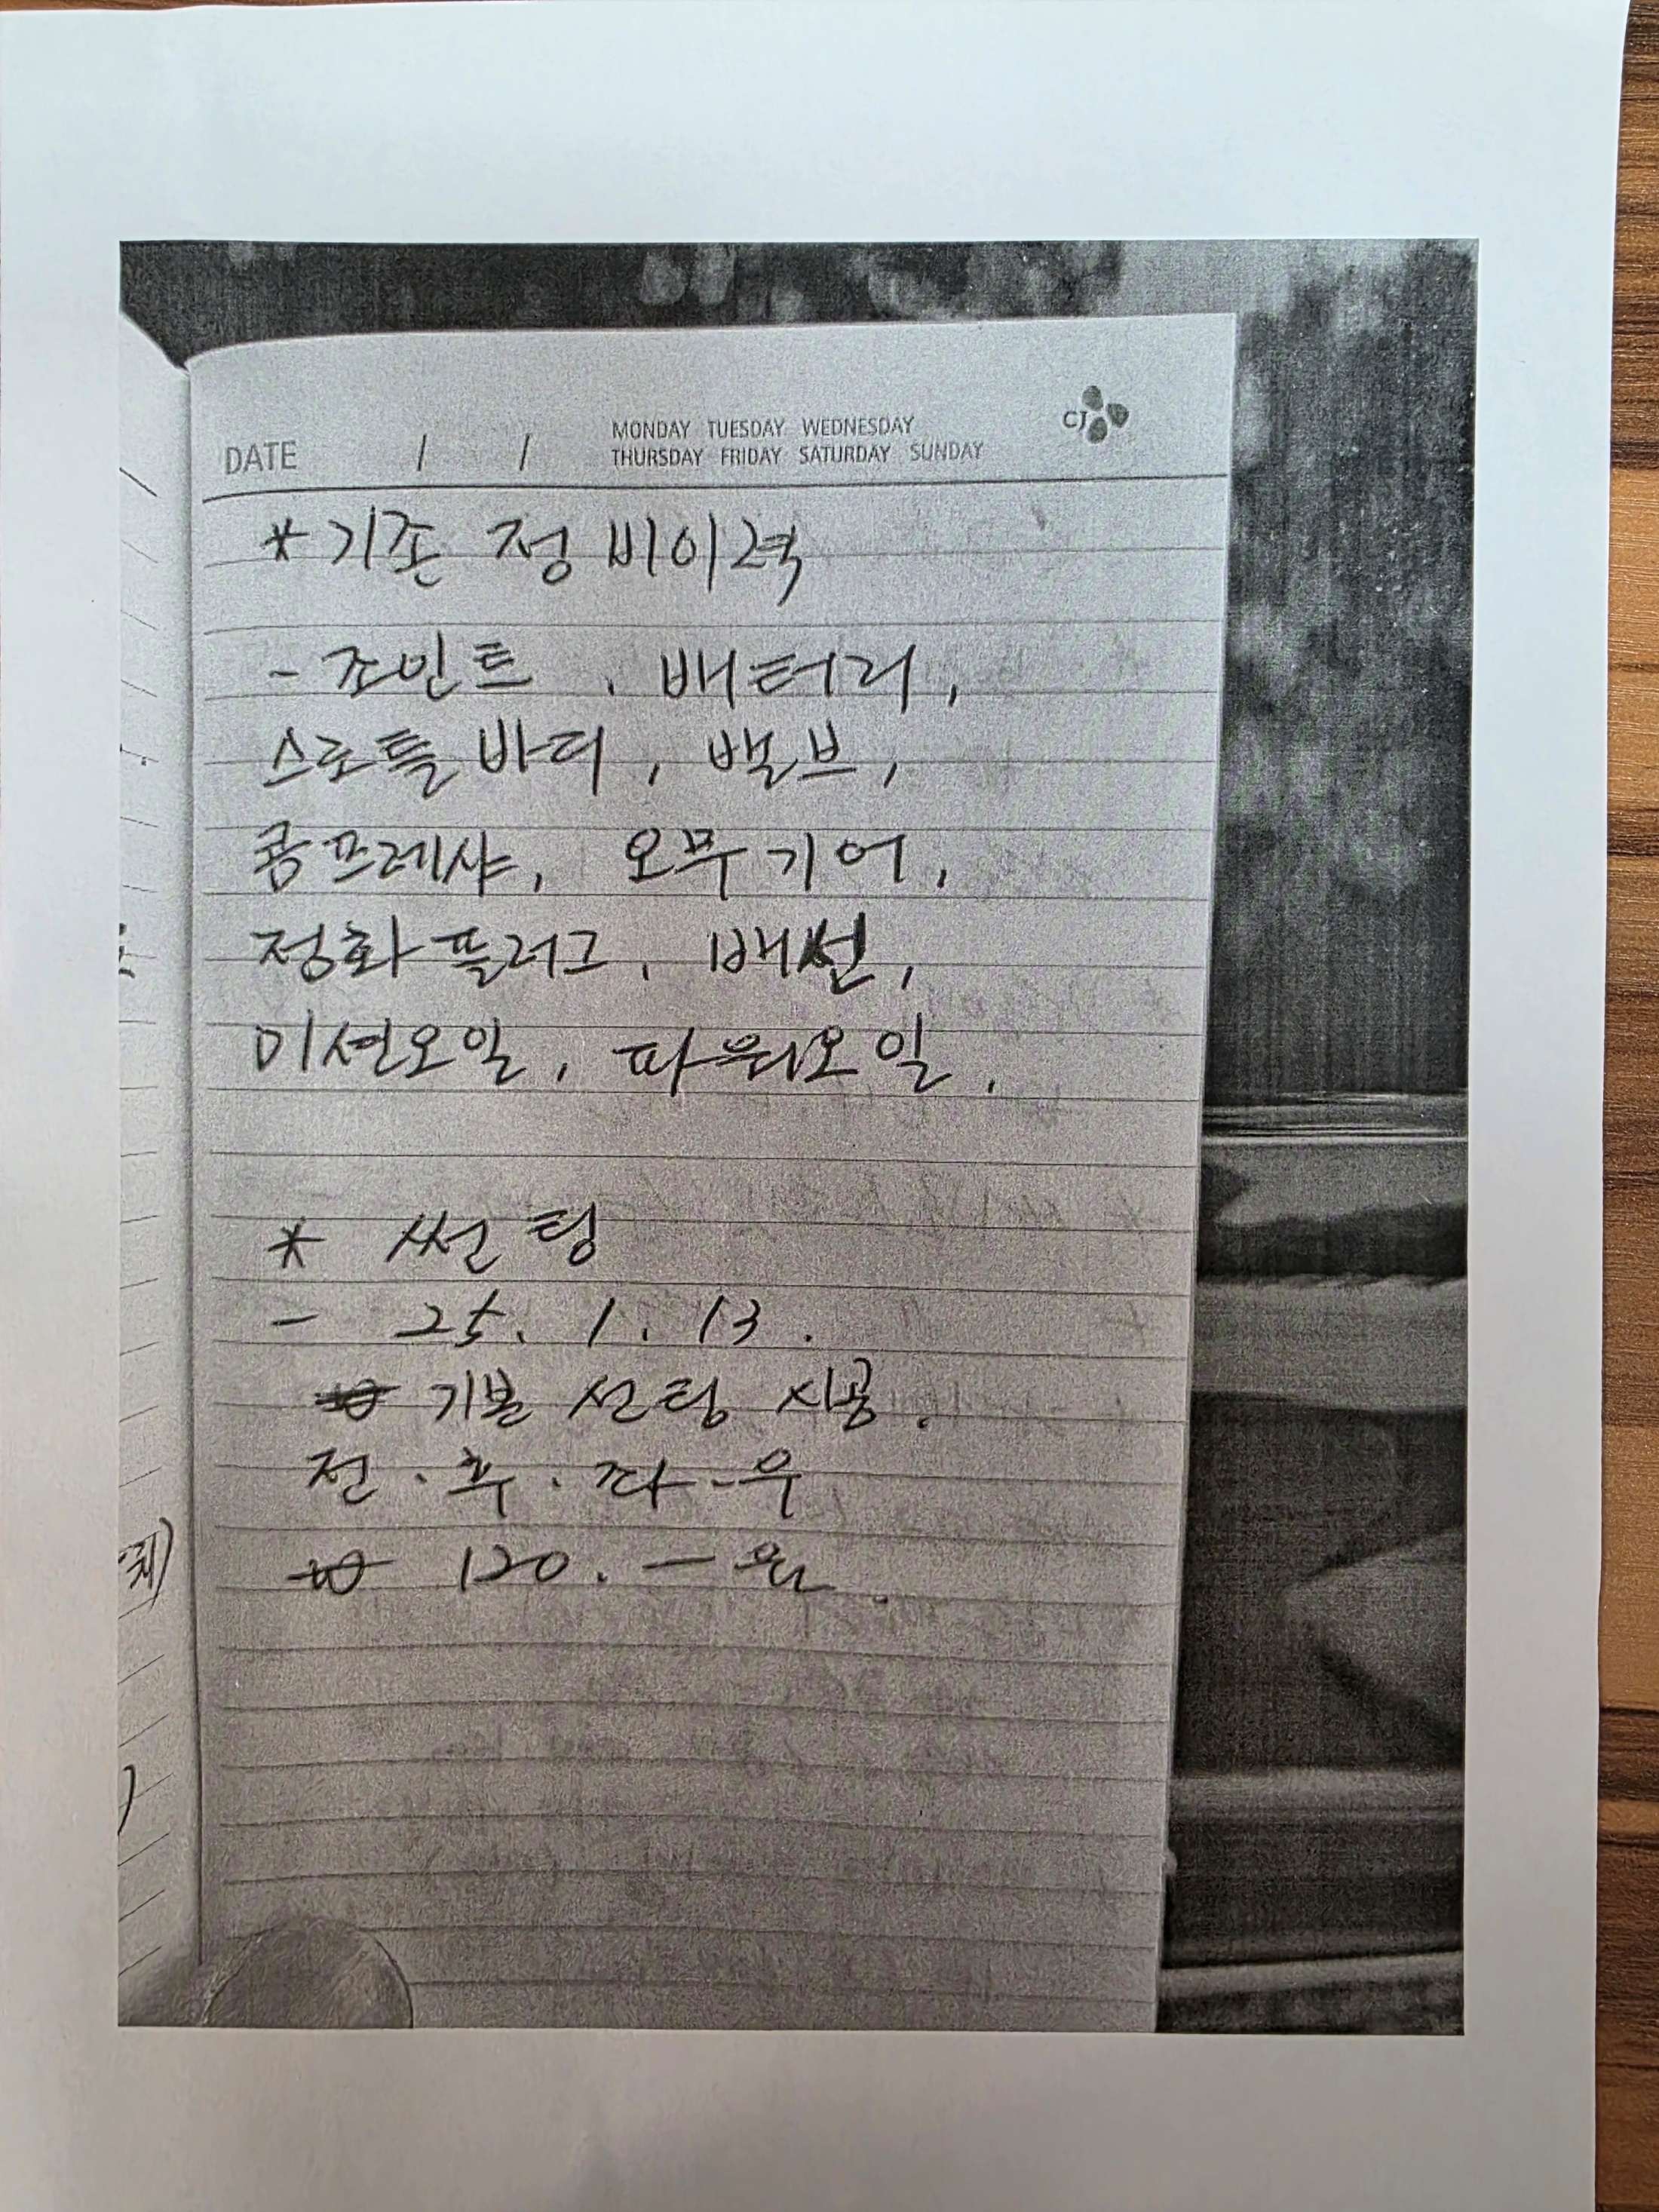 DATE / / MONDAY TUESDAY WEDNESDAY
THURSDAY FRIDAY SATURDAY SUNDAY
CJ
* 기존 정비이력
- 조인트, 배터리,
스로틀바디, 밸브,
콤프레샤, 오무기어,
정화플러그, 배선,
미션오일, 파워오일,
* 썬팅
- 25. 1. 13.
기본 선팅 시공.
전·후·좌·우
₩ 120.- 원.